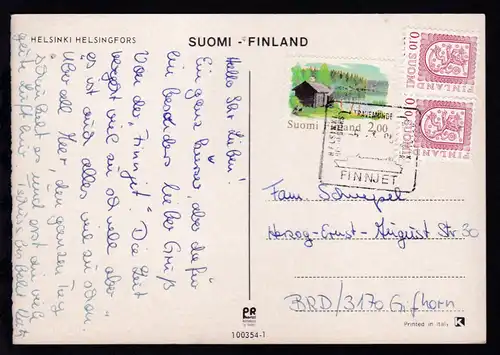 HELSINKI HELSINGFORS
SUOMI - FINLAND
Hallo Ihr Lieben!
Ein ganz kurzer, aber dafür
ein besonders lieber Gruß
von der "Finnjet". Die Zeit
vergeht viel zu schnell aber
es ist auch alles viel zu schön.
Überall Meer, den ganzen Tag
schaukelt es und erst die viele
gute Luft hier. Tschüs bis bald
Suomi Finland 2,00
0,10 SUOMI FINLAND
0,10 SUOMI FINLAND
TRAVEMÜNDE
HELSINKI
FINNJET
Fam. Schrepel
Herzog-Ernst-August Str. 30
BRD/3170 Gifhorn
PR
100354-1
Printed in Italy
K